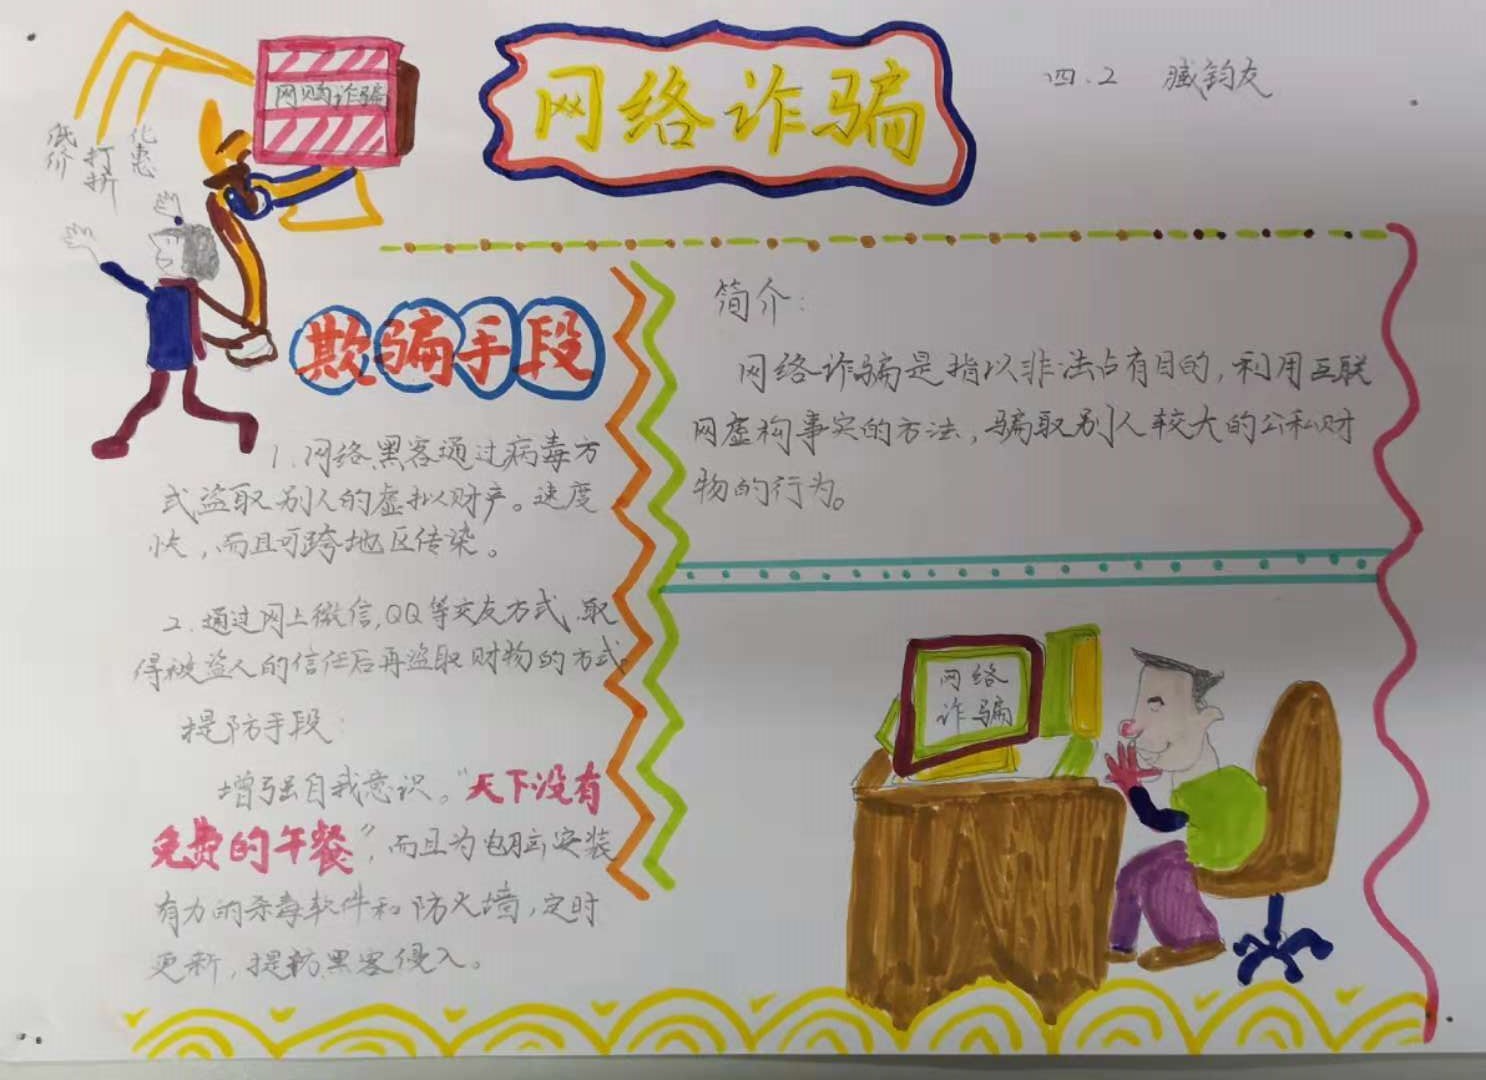 网络诈骗
四.2 臧钧友
网购诈骗
低价
打折
化惠
欺骗手段
1.网络黑客通过病毒方
式盗取别人的虚拟财产。速度
快，而且可跨地区传染。
2.通过网上微信,QQ等交友方式,取
得被盗人的信任后再盗取财物的方式。
提防手段：
增强自我意识。“天下没有
免费的午餐”，而且为电脑安装
有力的杀毒软件和防火墙，定时
更新，提防黑客侵入。
简介：
网络诈骗是指以非法占有目的，利用互联
网虚构事实的方法，骗取别人较大的公私财
物的行为。
网络
诈骗